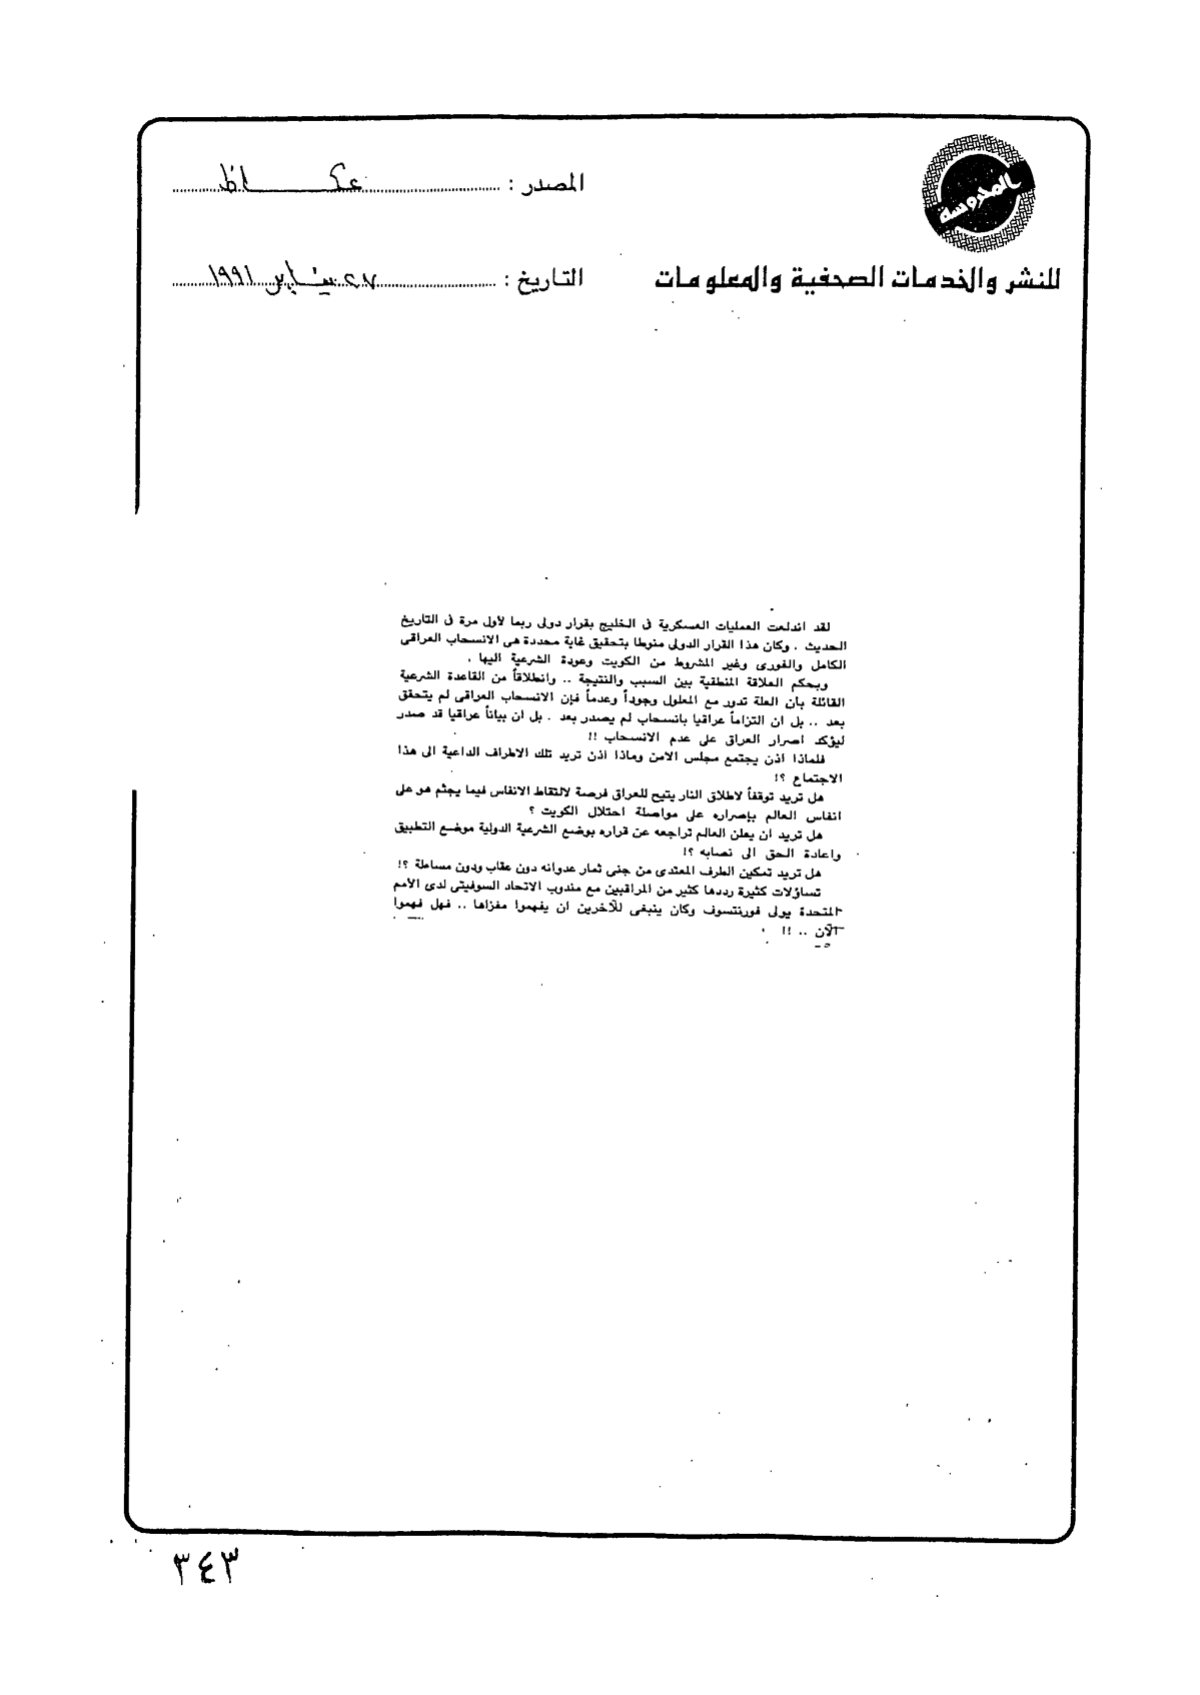 المحروسة
للنشر والخدمات الصحفية والمعلومات
المصدر : عكاظ
التاريخ : ٢٧ يناير ١٩٩١
لقد اندلعت العمليات العسكرية فى الخليج بقرار دولى ربما لأول مرة فى التاريخ
الحديث . وكان هذا القرار الدولى منوطا بتحقيق غاية محددة هى الانسحاب العراقى
الكامل والفورى وغير المشروط من الكويت وعودة الشرعية اليها .
وبحكم العلاقة المنطقية بين السبب والنتيجة .. وانطلاقاً من القاعدة الشرعية
القائلة بأن العلة تدور مع المعلول وجوداً وعدماً فإن الانسحاب العراقى لم يتحقق
بعد .. بل ان التزاماً عراقيا بانسحاب لم يصدر بعد . بل ان بياناً عراقيا قد صدر
ليؤكد اصرار العراق على عدم الانسحاب !!
فلماذا اذن يجتمع مجلس الامن وماذا اذن تريد تلك الاطراف الداعية الى هذا
الاجتماع ؟!
هل تريد توقفاً لاطلاق النار يتيح للعراق فرصة لالتقاط الانفاس فيما يجثم هو على
انفاس العالم بإصراره على مواصلة احتلال الكويت ؟
هل تريد ان يعلن العالم تراجعه عن قراره بوضع الشرعية الدولية موضع التطبيق
واعادة الحق الى نصابه ؟!
هل تريد تمكين الطرف المعتدى من جنى ثمار عدوانه دون عقاب ودون مساءلة ؟!
تساؤلات كثيرة رددها كثير من المراقبين مع مندوب الاتحاد السوفيتى لدى الأمم
المتحدة يولى فورنتسوف وكان ينبغى للآخرين ان يفهموا مغزاها .. فهل فهموا
الآن .. !!
٣٤٣